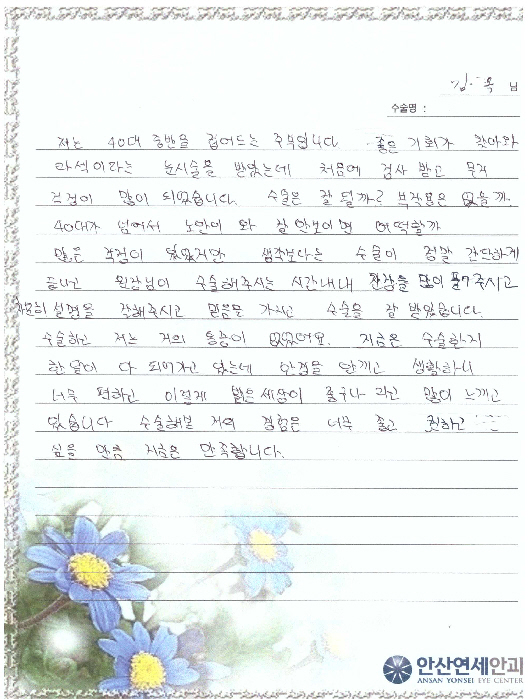 김 옥 님
수술명 :
저는 40대 중반을 접어드는 주부입니다. 좋은 기회가 찾아와
라식이라는 눈수술을 받았는데 처음에 검사 받고 무척
걱정이 많이 되었습니다. 수술은 잘 될까? 부작용은 없을까.
40대가 넘어서 노안이 와 잘 안보이면 어떡할까
많은 걱정이 있었지만 생각보다는 수술이 정말 간단하게
끝나고 원장님이 수술해주시는 시간내내 긴장을 많이 풀어주시고
차분히 설명을 잘해주시고 믿음을 가지고 수술을 잘 받았습니다.
수술하고 저는 거의 통증이 없었어요. 지금은 수술한지
한달이 다 되어가고 있는데 안경을 안끼고 생활하니
너무 편하고 이렇게 밝은세상이 있구나 라고 많이 느끼고
있습니다 수술해본 저의 경험은 너무 좋고 권하고
싶을 만큼 지금은 만족합니다.
안산연세안과
ANSAN YONSEI EYE CENTER